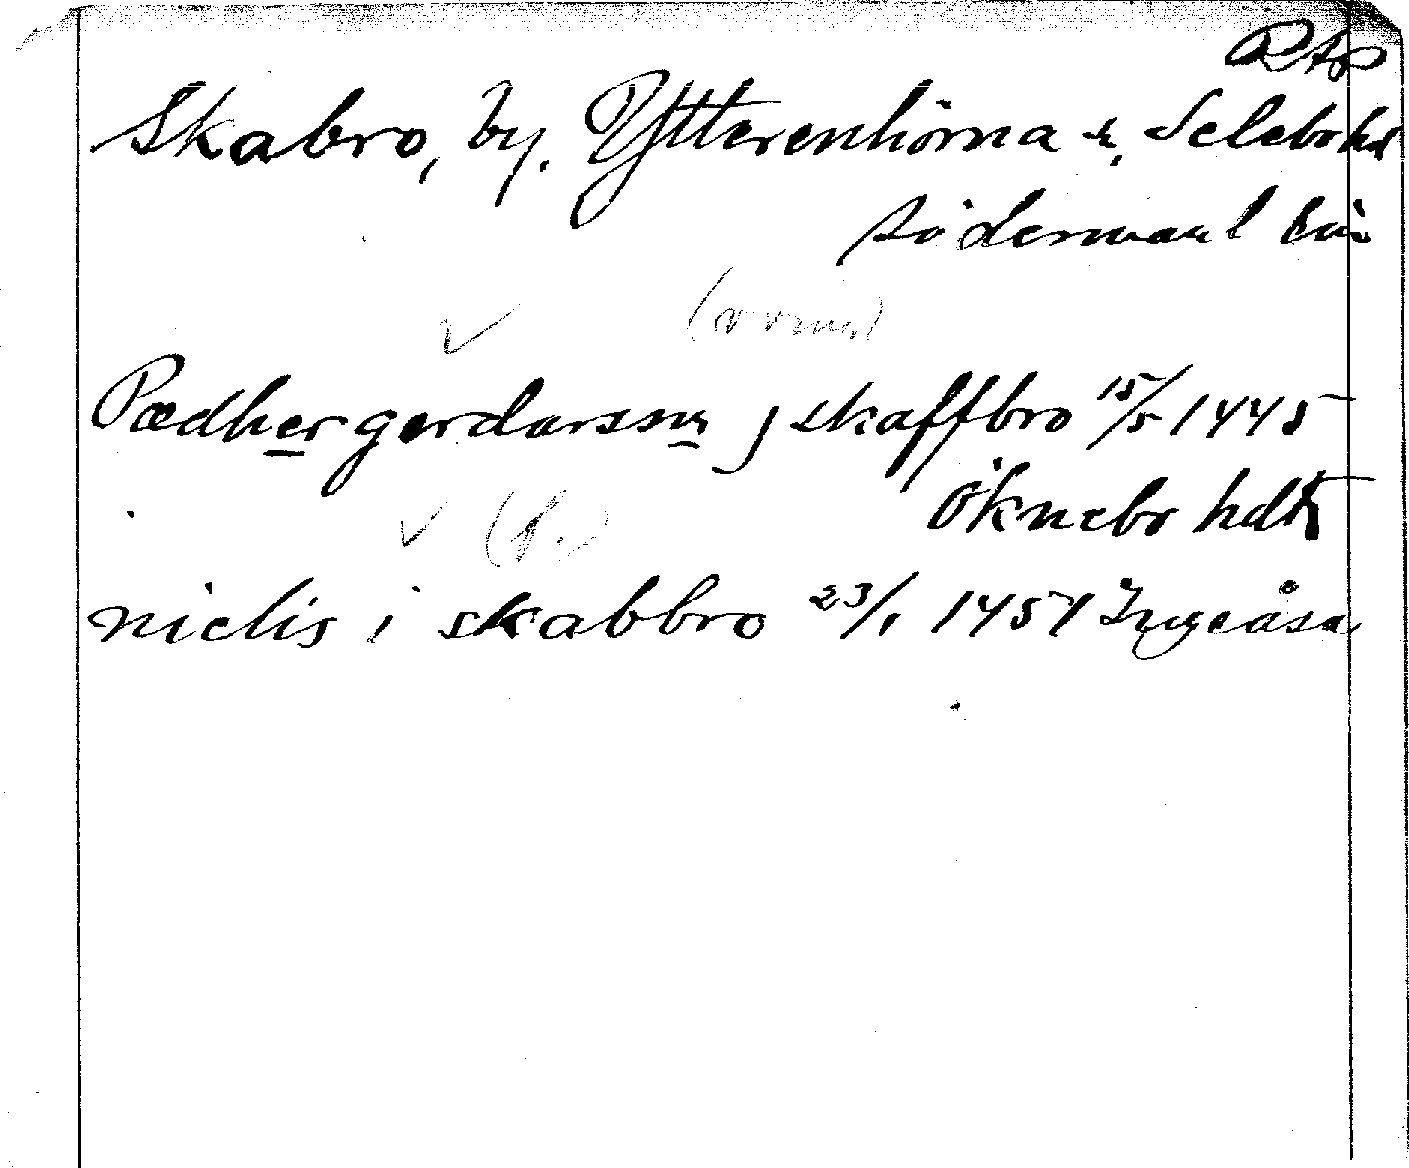 RAp
Skabro, by. Ytterenhörna s, Selebo hd
Södermanl län
Pædher gerdarsson j skaffbro 15/5 1445
Öknebo hdt
nielis i skabbro 23/1 1451 Ingeåsa